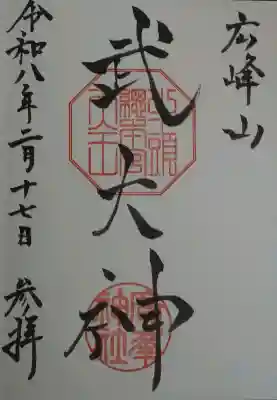 広峰山
武大神
令和八年二月十七日 参拝
廣峯
神社